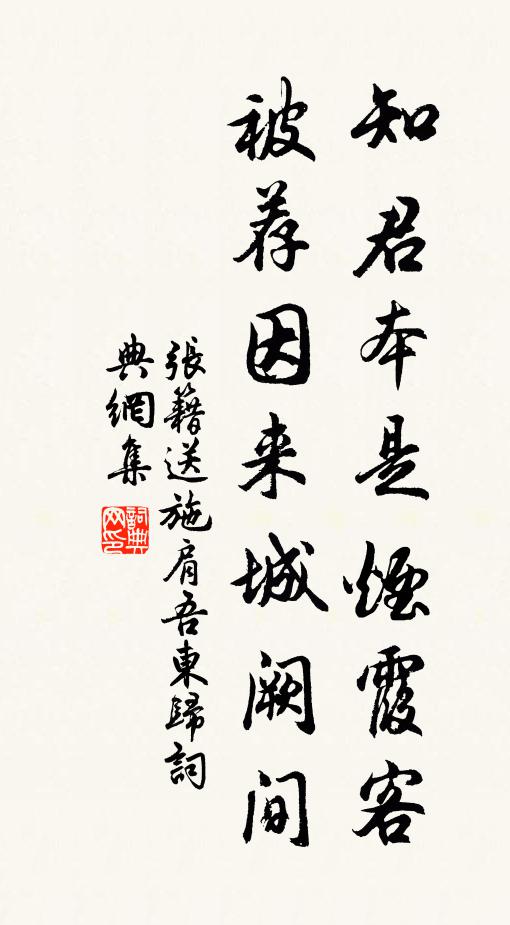 知君本是煙霞客
被荐因来城阙间
張籍送施肩吾東歸詞
典網集
詞典网印